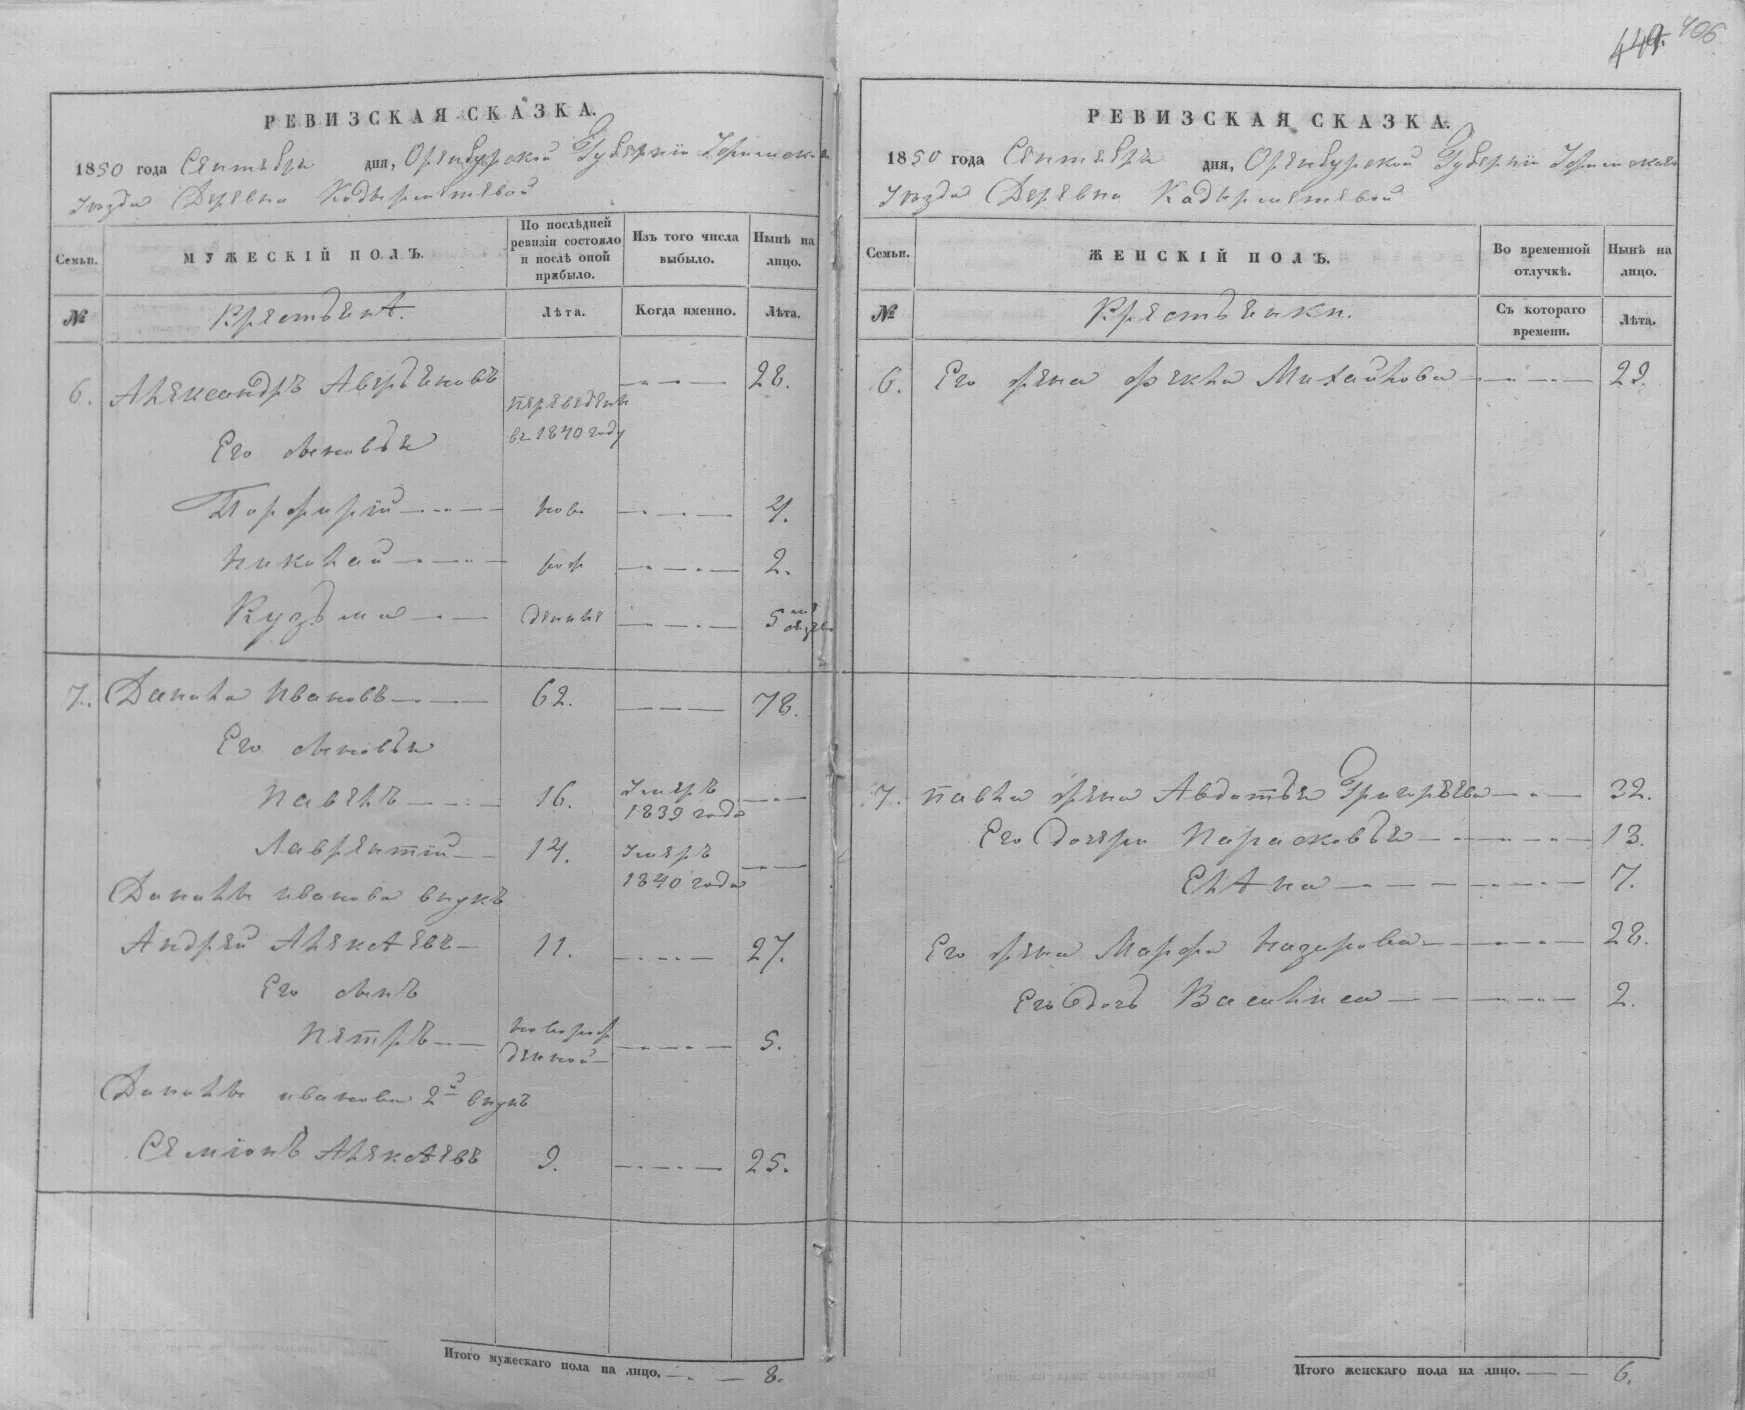 449. 406
РЕВИЗСКАЯ СКАЗКА.
1850 года Сентября дня, Оренбургской Губернiи Уфимскаго
Уѣзда Деревни Кадырметевой
Семьи.
МУЖЕСКIЙ ПОЛЪ.
По послѣдней ревизiи состояло и послѣ оной прибыло.
Изъ того числа выбыло.
Нынѣ на лицо.
№
Крестьянѣ.
Лѣта.
Когда именно.
Лѣта.
6. Александръ Аверьяновъ переведенъ въ 1840 году 28.
Его сыновья
Порфирiй ново 4.
Николай рож 2.
Кузьма денные 5 месяцев
7. Данила Ивановъ 62. 78.
Его сыновья
Павелъ 16. Умеръ 1839 года
Лаврентiй 14. Умеръ 1840 года
Данилы иванова внукъ
Андрей Алексѣевъ 11. 27.
Его сынъ
Петръ новорож денной 5.
Данилы иванова 2й внукъ
Семiонъ Алексѣевъ 9. 25.
Итого мужескаго пола на лицо. 8.
РЕВИЗСКАЯ СКАЗКА.
1850 года Сентября дня, Оренбургской Губернiи Уфимскаго
Уѣзда Деревни Кадырметевой
Семьи.
ЖЕНСКIЙ ПОЛЪ.
Во временной отлучкѣ.
Нынѣ на лицо.
№
Крестьянки.
Съ котораго времени.
Лѣта.
6. Его жена Фекла Михайлова 29.
7. Павла жена Авдотья Григорьева 32.
Его дочери Парасковья 13.
Елѣна 7.
Его жена Марфа Назарова 28.
Его дочь Василиса 2.
Итого женскаго пола на лицо. 6.